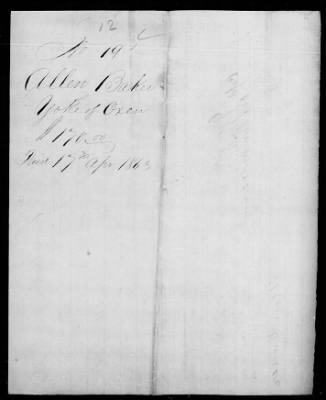 12
No 19
Allen Baker
Yoke of Oxen
$170.00
17th Apr 1863